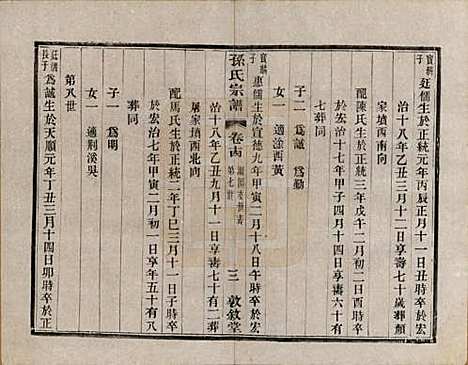 實麟子
廷儒生於正統元年丙辰正月十一日丑時卒於宏
治十八年乙丑三月十二日享壽七十歲葬顏
家墳西南向
配陳氏生於正統三年戊午二月初二日酉時卒
於宏治十七年甲子四月十四日享壽六十有
七葬同
子二 爲誠 爲勤
女一 適涂酉黃
實麟子
惠儒生於宣德九年甲寅二月十八日午時卒於宏
孫氏宗譜
卷十四
第七世
三
敦敘堂
治十八年乙丑九月十一日享壽七十有二葬
屠家墳西北向
配馬氏生於正統二年丁巳三月十一日子時卒
於宏治七年甲寅二月初一日享年五十有八
葬同
子一 爲明
女一 適荆溪吳
第八世
廷儒長子
爲誠生於天順元年丁丑三月十四日卯時卒於正